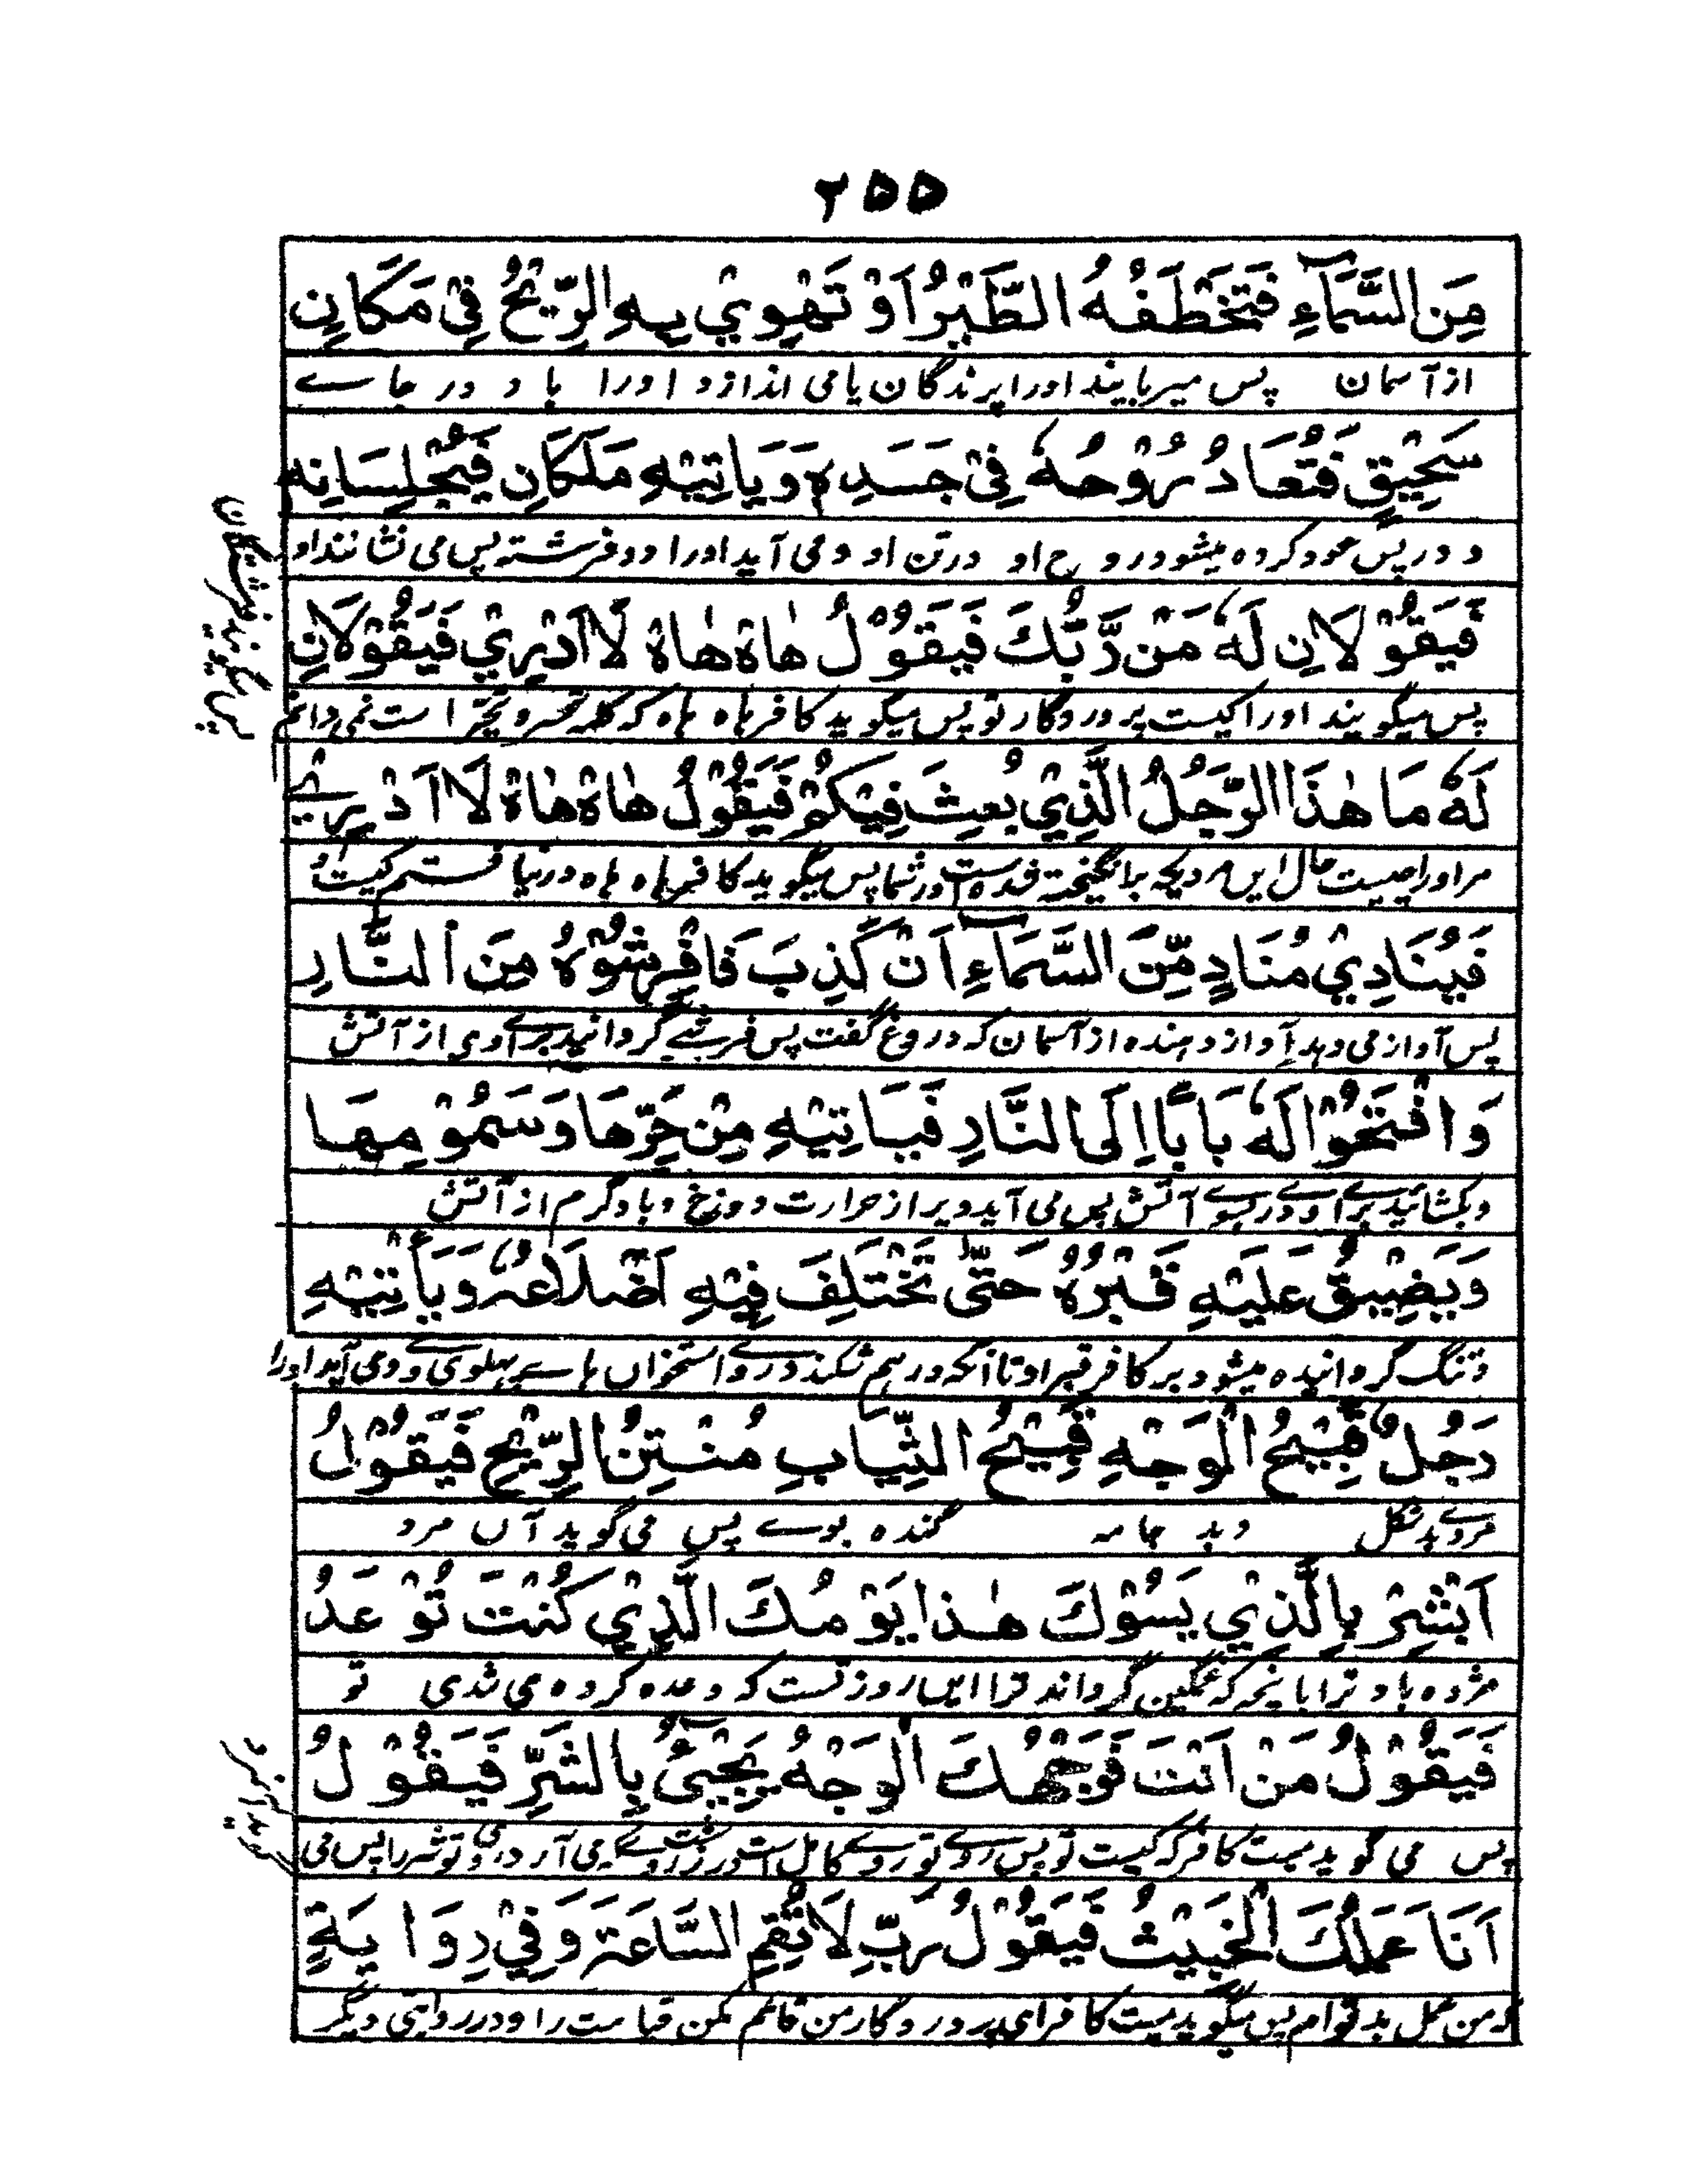 ۲۵۵
مِنَ السَّمَآءِ فَتَخْطَفُهُ الطَّيْرُ اَوْ تَهْوِيْ بِهِ الرِّيْحُ فِيْ مَكَانٍ
از آسمان پس میربایند اورا پرندگان یا می اندازد اورا باد در جاے
سَحِيْقٍ فَتُعَادُ رُوْحُهٗ فِيْ جَسَدِهٖ وَيَاتِيْهِ مَلَكَانِ فَيُجْلِسَانِهٖ
دور پس عود کرده میشود روح او در تن او و می آید اورا دو فرشته پس می نشانند او
فَيَقُوْلَانِ لَهٗ مَنْ رَّبُّكَ فَيَقُوْلُ هَاهْ هَاهْ لَا اَدْرِيْ فَيَقُوْلَانِ
پس میگویند اورا کیست پروردگار تو پس میگوید کافر هاه هاه که کلمه تحسر و تحیر است نمی دانم
لَهٗ مَا هٰذَا الرَّجُلُ الَّذِيْ بُعِثَ فِيْكُمْ فَيَقُوْلُ هَاهْ هَاهْ لَا اَدْرِيْ
مر اورا چیست حال این مردیکه برانگیخته شده است در شما پس میگوید کافر هاه هاه
فَيُنَادِيْ مُنَادٍ مِّنَ السَّمَآءِ اَنْ كَذِبَ فَافْرِشُوْهُ مِنَ النَّارِ
پس آواز می دهد آواز دهنده از آسمان که دروغ گفت پس فرشے گردانید براے اوی از آتش
وَافْتَحُوْا لَهٗ بَابًا اِلَى النَّارِ فَيَاتِيْهِ مِنْ حَرِّهَا وَسَمُوْمِهَا
و بکشائید براے او درے بسوے آتش پس می آید ویرا از حرارت دوزخ و باد گرم از آتش
وَيَضِيْقُ عَلَيْهِ قَبْرُهٗ حَتّٰى تَخْتَلِفَ فِيْهِ اَضْلَاعُهٗ وَيَأْتِيْهِ
و تنگ گردانیده میشود بر کافر قبر او تا آنکه در هم شکند در وے استخواں هاے پهلوی وے و می آید اورا
رَجُلٌ قَبِيْحُ الْوَجْهِ قَبِيْحُ الثِّيَابِ مُنْتِنُ الرِّيْحِ فَيَقُوْلُ
مردے بدشکل و بد جامه گنده بوے پس می گوید آں مرد
اَبْشِرْ بِالَّذِيْ يَسُوْكَ هٰذَا يَوْمُكَ الَّذِيْ كُنْتَ تُوْعَدُ
مژده باد ترا بانچه که غمگین گرداند ترا ایں روز تست که وعده کرده می شدی تو
فَيَقُوْلُ مَنْ اَنْتَ فَوَجْهُكَ الْوَجْهُ يَجِيْئُ بِالشَّرِّ فَيَقُوْلُ
پس می گوید میت کافر که کیست تو پس روے تو روے کامل است در زشت روے می آرد پس می
اَنَا عَمَلُكَ الْخَبِيْثُ فَيَقُوْلُ رَبِّ لَا تُقِمِ السَّاعَةَ وَفِيْ رِوَايَةٍ
که من عمل بد توام پس میگوید میت کافر ای پروردگار من قائم مکن قیامت را و در روایتی دیگر